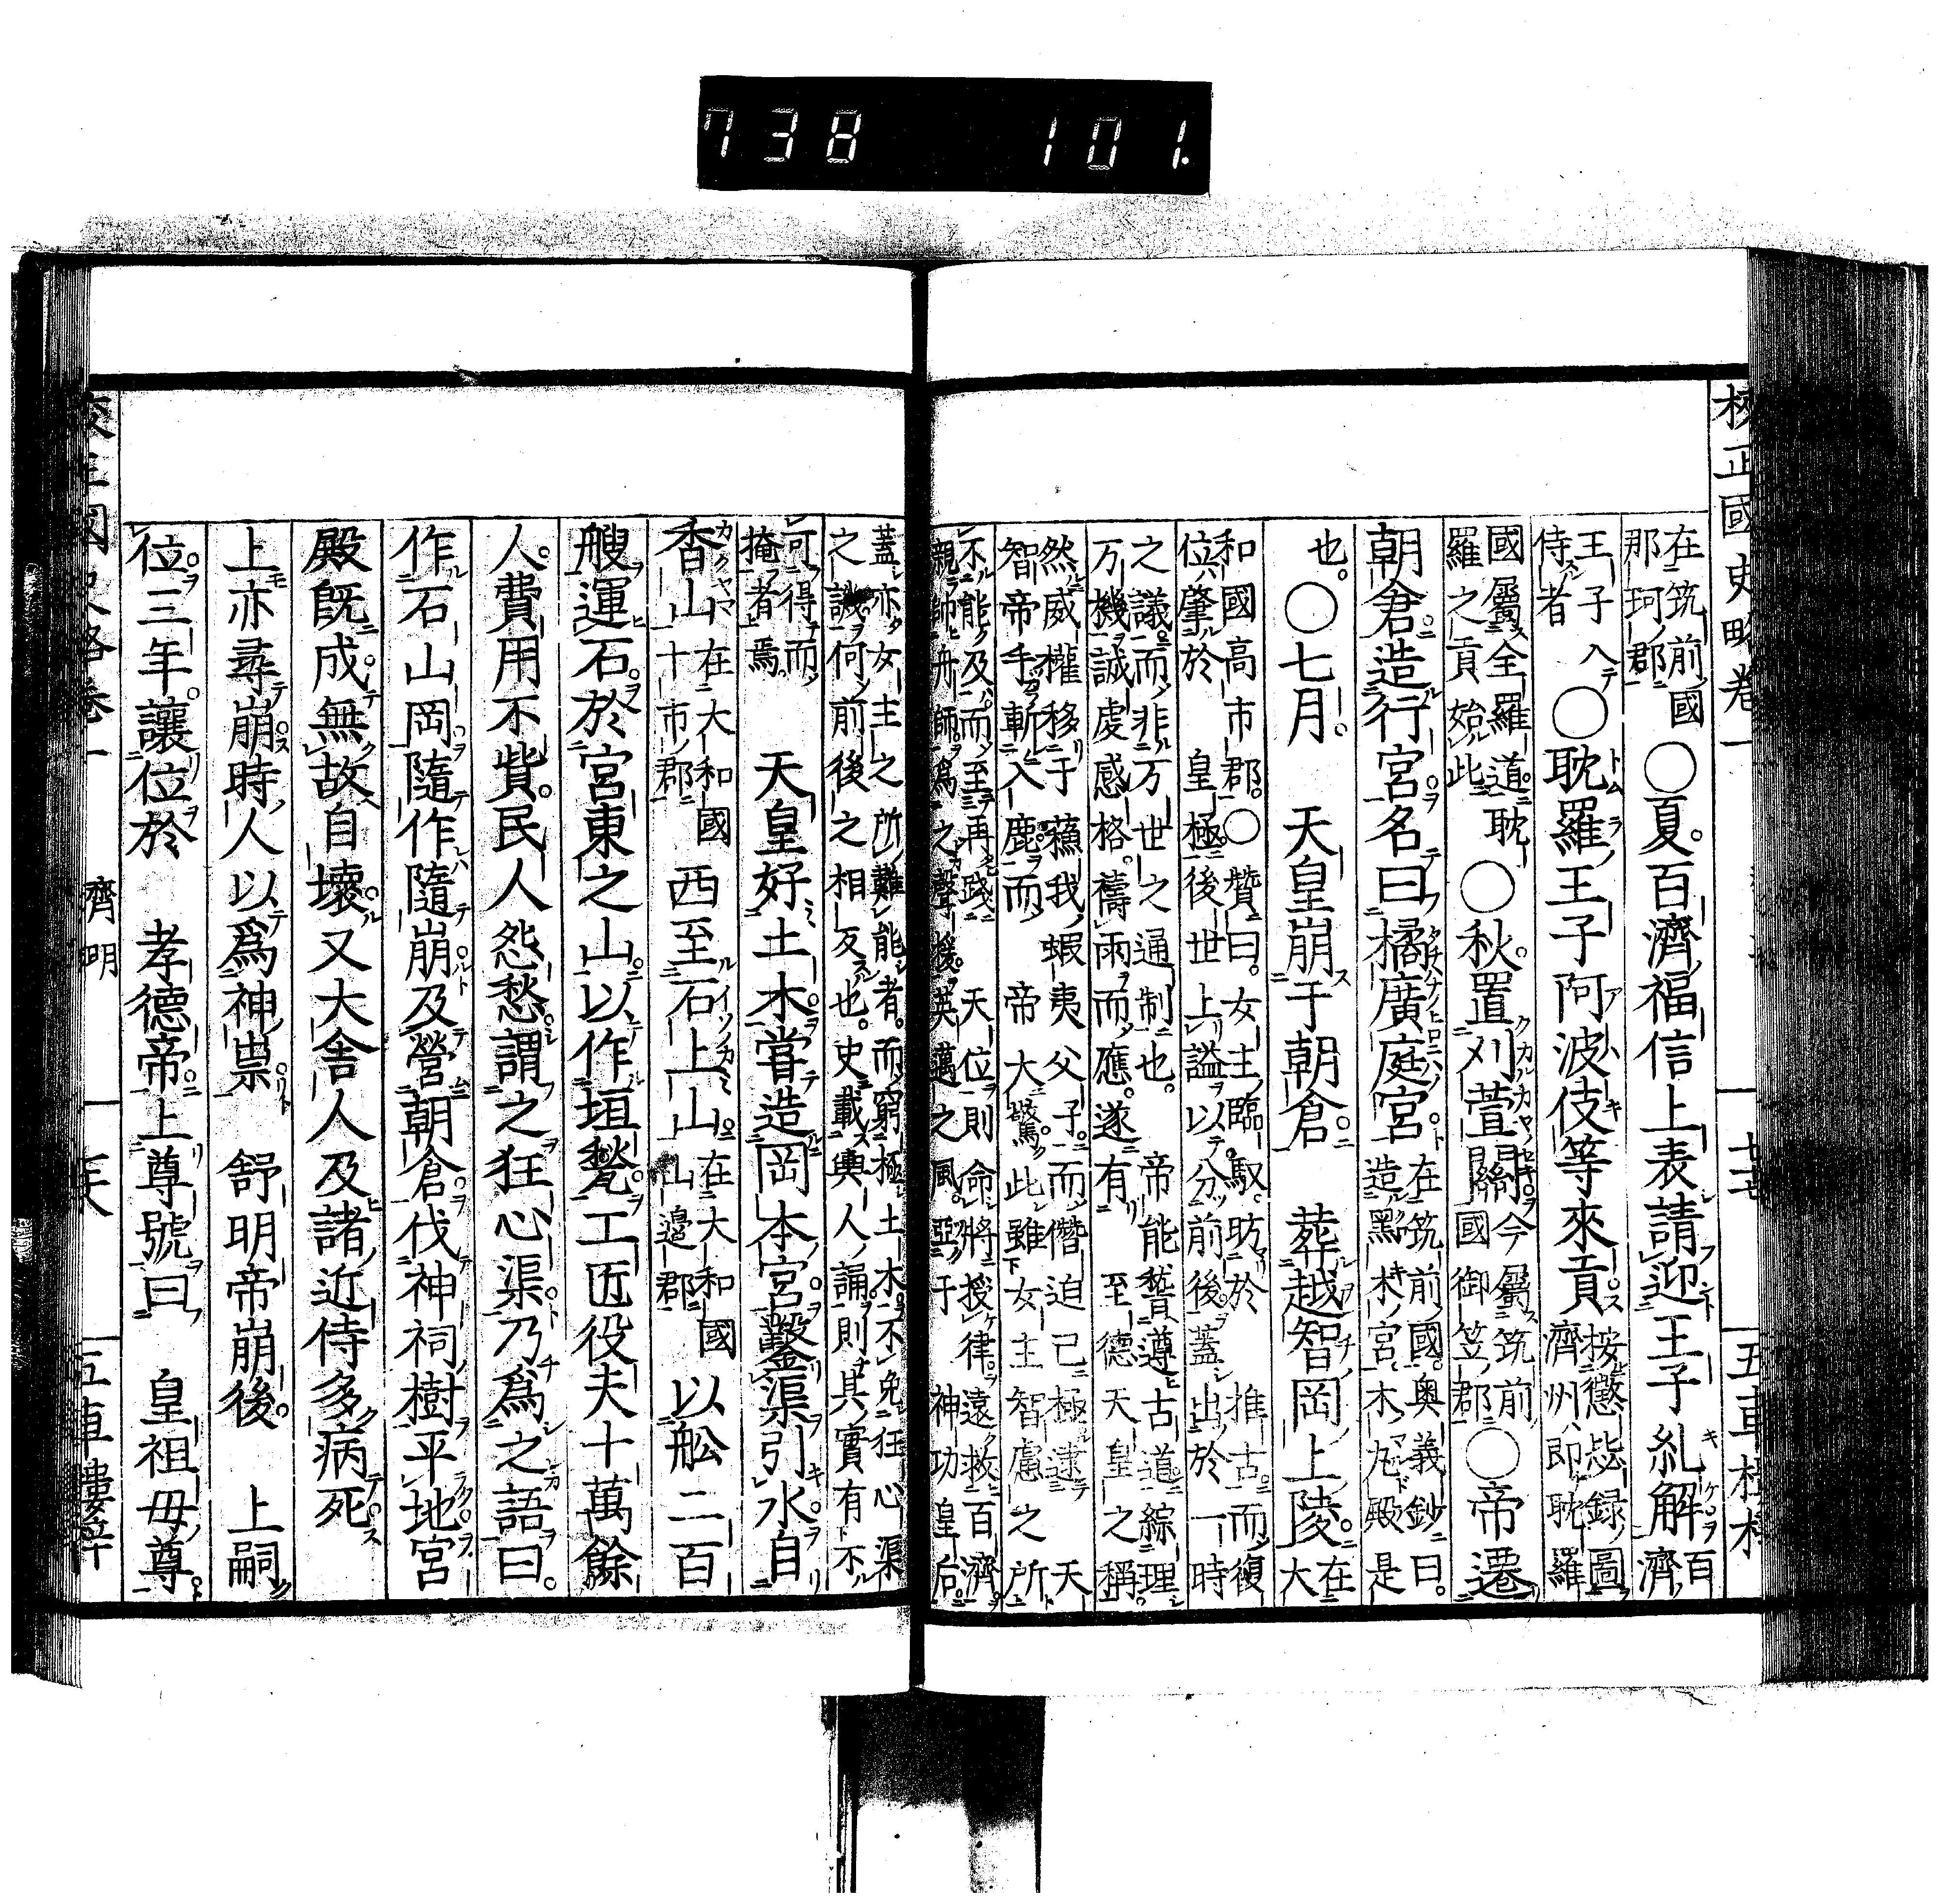 738 101.
校正國史略卷一 五車樓梓
在筑前國
那珂郡
○夏百濟福信上表請迎王子糺解
百濟
王子入
侍者
○耽羅王子阿波伎等來貢
按懲毖録圖
濟州即耽羅
國屬全羅道耽
羅之貢始此
○秋置刈萱關
今屬筑前
國御笠郡
○帝遷
朝倉造行宮名曰橘廣庭宮
在筑前國奥義鈔曰
造黑木宮木丸殿是
也○七月 天皇崩于朝倉 葬越智岡上陵
在大
和國高市郡○贊曰女主臨馭昉於 推古而復
位肇於 皇極後世上謚以分前後蓋出於一時
之議而非万世之通制也 帝能誓遵古道綜理
万機誠虔感格禱雨而應遂有 至德天皇之稱
然威權移于蘇我蝦夷父子而僭迫已極逮 天
智帝手斬入鹿而 帝大驚此雖女主智慮之所
不能及而至再踐 天位則命將授律遠救百濟
親帥舟師爲之聲援英邁之風亞于 神功皇后
蓋亦女主之所難能者而窮極土木不免狂心渠
之譏何前後之相反也史載輿人誦則其實有不
可得而
掩者焉
天皇好土木嘗造岡本宮鑿渠引水自
香山
在大和國
十市郡
西至石上山
在大和國
山邉郡
以舩二百
艘運石於宮東之山以作垣甃工匠役夫十萬餘
人費用不貲民人怨愁謂之狂心渠乃爲之語曰
作石山岡隨作隨崩及營朝倉伐神祠樹平地宮
殿既成無故自壞又大舎人及諸近侍多病死
上亦尋崩時人以爲神祟 舒明帝崩後 上嗣
位三年讓位於 孝德帝上尊號曰 皇祖母尊
齊明 五車樓梓